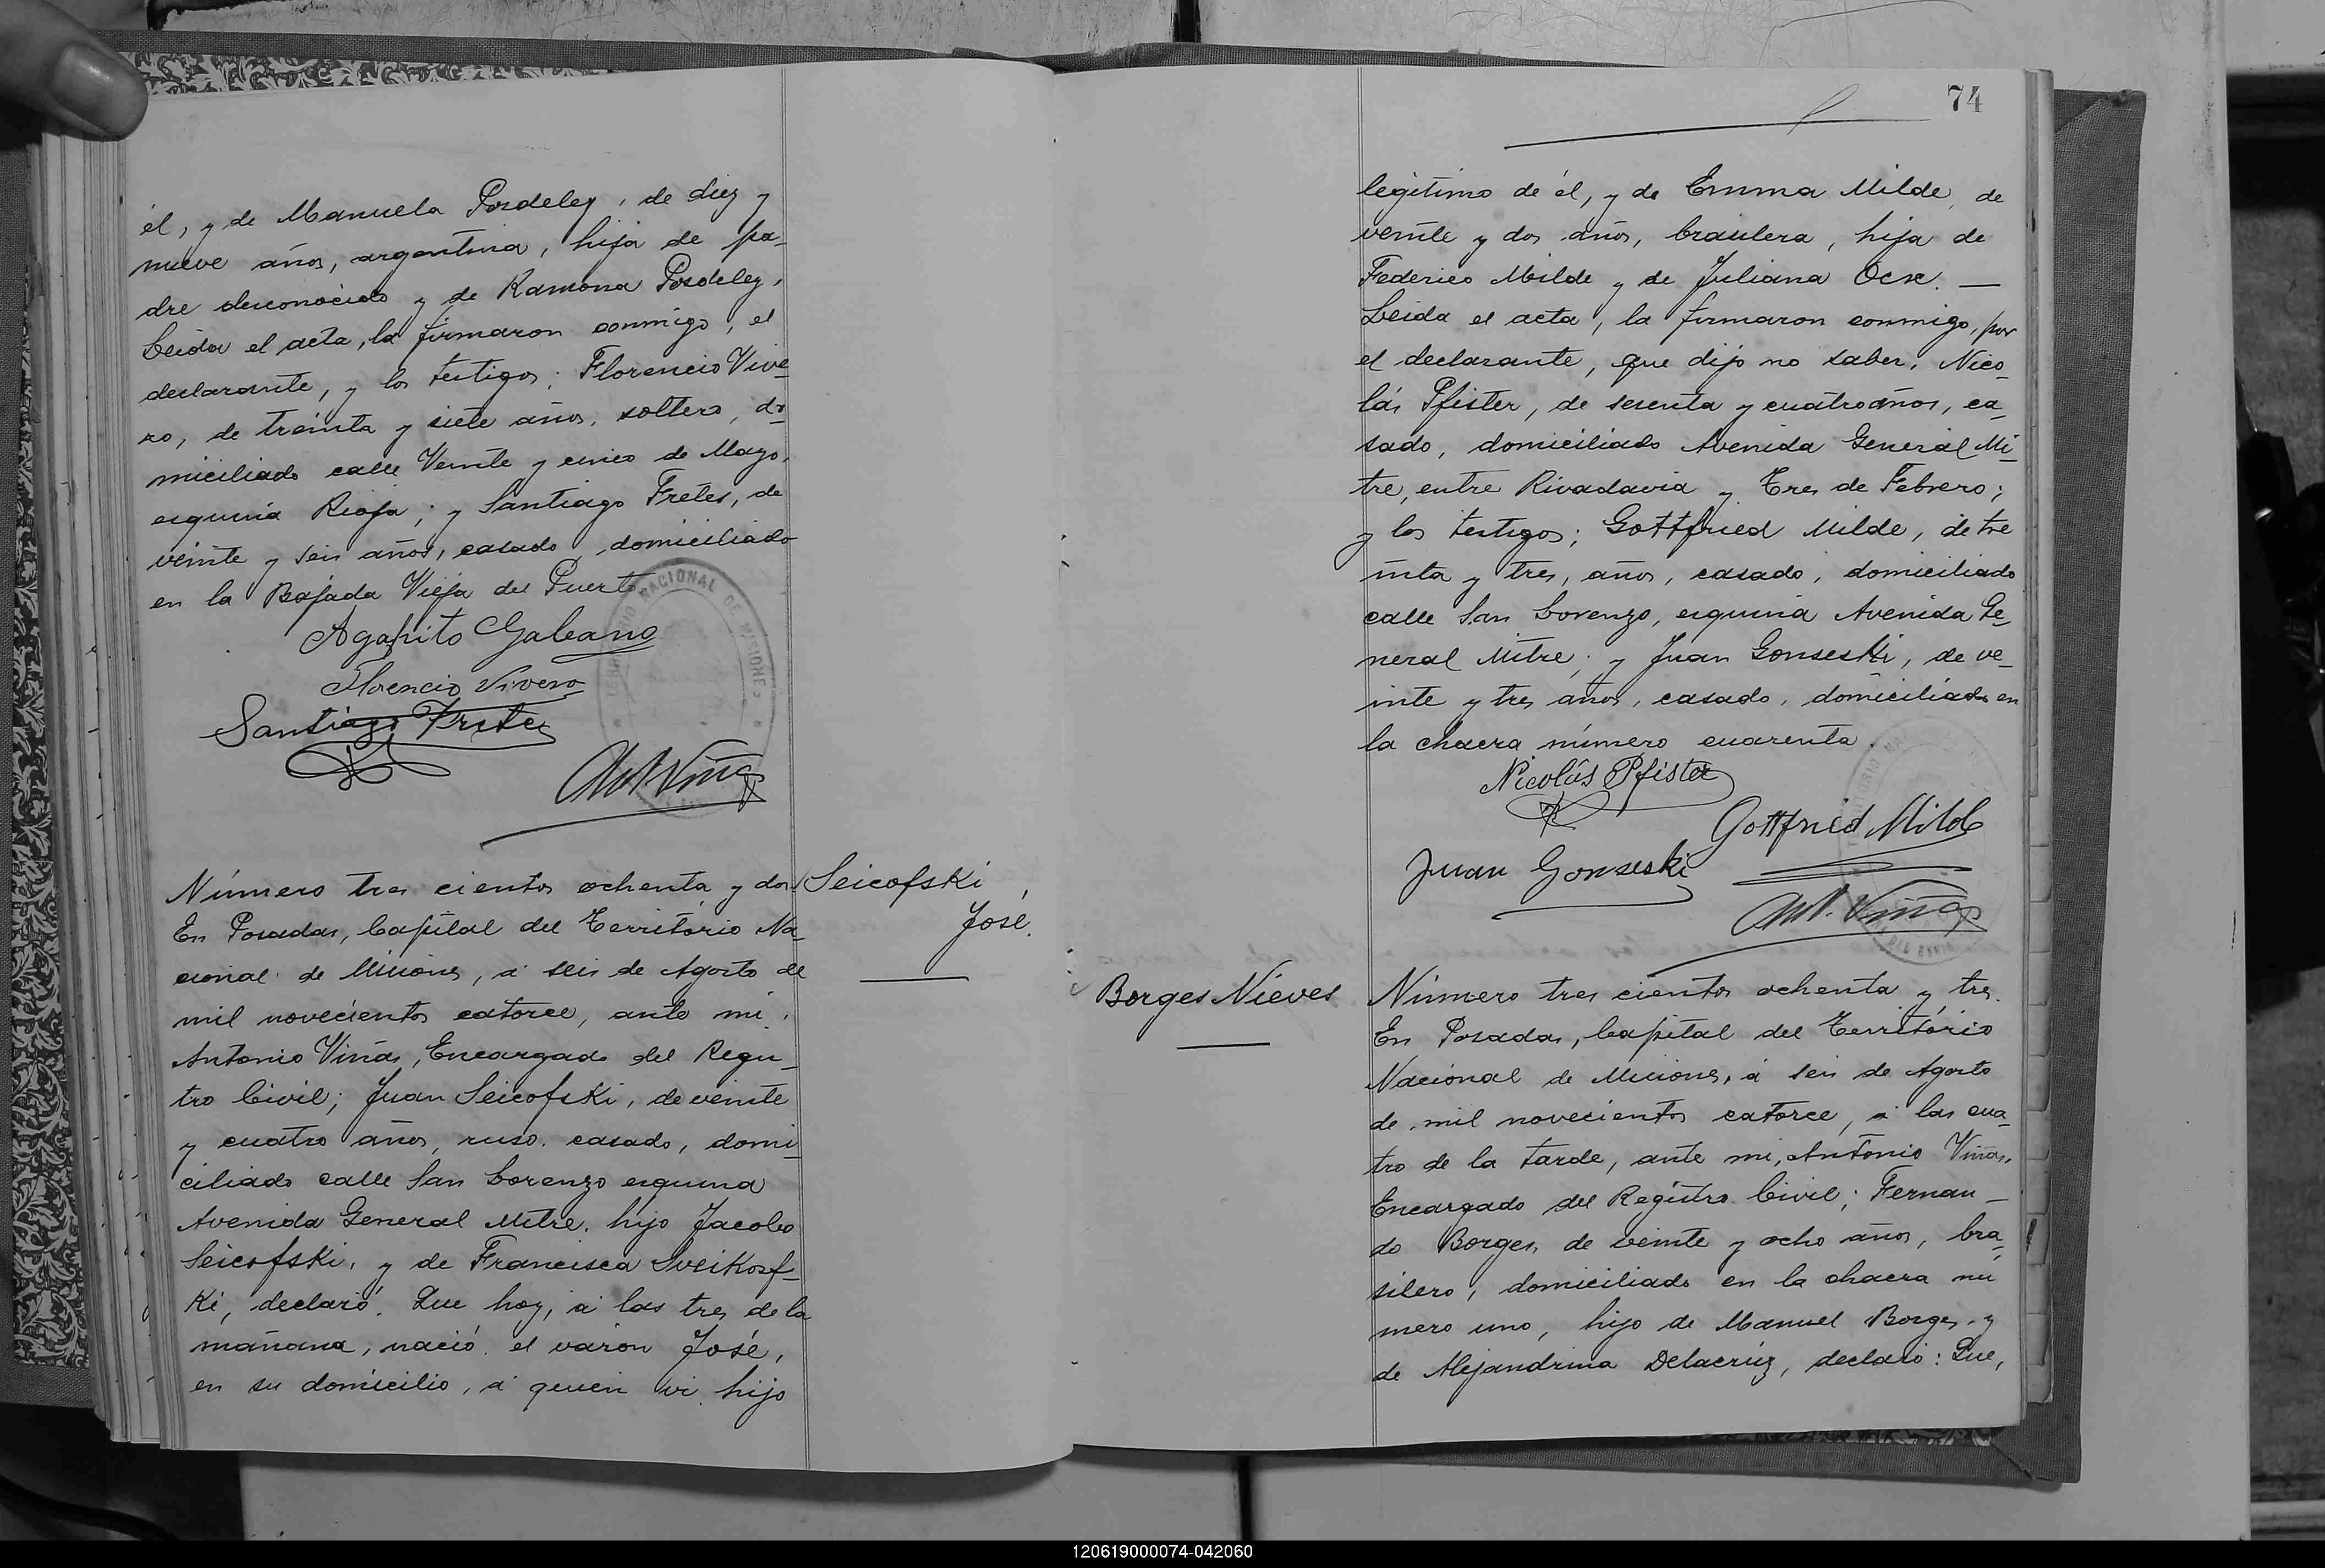 él, y de Manuela Posdeley, de diez y
nueve años, argentina, hija de pa-
dre desconocido y de Ramona Posdeley,
Leida el acta, la firmaron conmigo, el
declarante, y los testigos; Florencio Vive-
ro, de treinta y siete años, soltero, do-
miciliado calle Veinte y cinco de Mayo,
esquina Rioja; y Santiago Fretes, de
veinte y seis años, casado, domiciliado
en la Bajada Vieja del Puerto
Agapito Galeano
Florencio Vivero
Santiago Fretes
Ant. Viñas
Número tres cientos ochenta y dos
En Posadas, Capital del Territorio Na-
cional de Misiones, á seis de Agosto de
mil novecientos catorce, ante mi,
Antonio Viñas, Encargado del Regis-
tro Civil; Juan Seicofski, de veinte
y cuatro años, ruso, casado, domi-
ciliado calle San Lorenzo esquina
Avenida General Mitre, hijo Jacobo
Seicofski, y de Francisca Sveikosf-
ki, declaró: Que hoy, á las tres de la
mañana, nació el varón José,
en su domicilio, á quien vi, hijo
Seicofski
José.
74
legítimo de él, y de Emma Milde, de
veinte y dos años, brasilera, hija de
Federico Milde y de Juliana Ocse. —
Leida el acta, la firmaron conmigo, por
el declarante, que dijo no saber, Nico-
lás Pfister, de sesenta y cuatro años, ca-
sado, domiciliado Avenida General Mi-
tre, entre Rivadavia y Tres de Febrero;
y los testigos; Gottfried Milde, de tre
inta y tres, años, casado, domiciliado
calle San Lorenzo, esquina Avenida Ge-
neral Mitre; y Juan Gonseski, de ve-
inte y tres años, casado, domiciliado en
la chacra número cuarenta.
Nicolás Pfister
Gottfried Milde
Juan Gonseski
Ant. Viñas
Borges Nieves
Número tres cientos ochenta y tres.
En Posadas, Capital del Territorio
Nacional de Misiones, á seis de Agosto
de mil novecientos catorce, á las cua-
tro de la tarde, ante mi, Antonio Viñas,
Encargado del Registro Civil; Fernan-
do Borges, de veinte y ocho años, bra-
silero, domiciliado en la chacra nú
mero uno, hijo de Manuel Borges, y
de Alejandrina Delacrúz, declaró: Que,
120619000074-042060